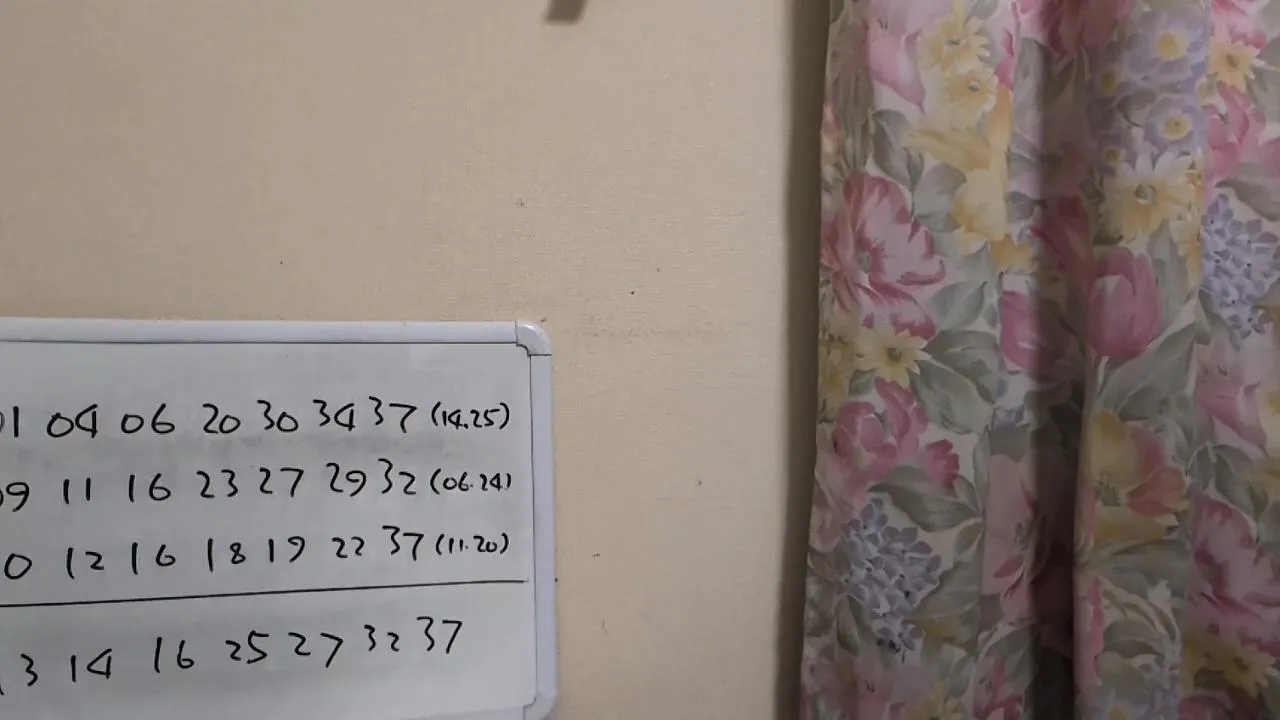 01 04 06 20 30 34 37 (14.25)
09 11 16 23 27 29 32 (06.24)
0 12 16 18 19 22 37 (11.20)
13 14 16 25 27 32 37